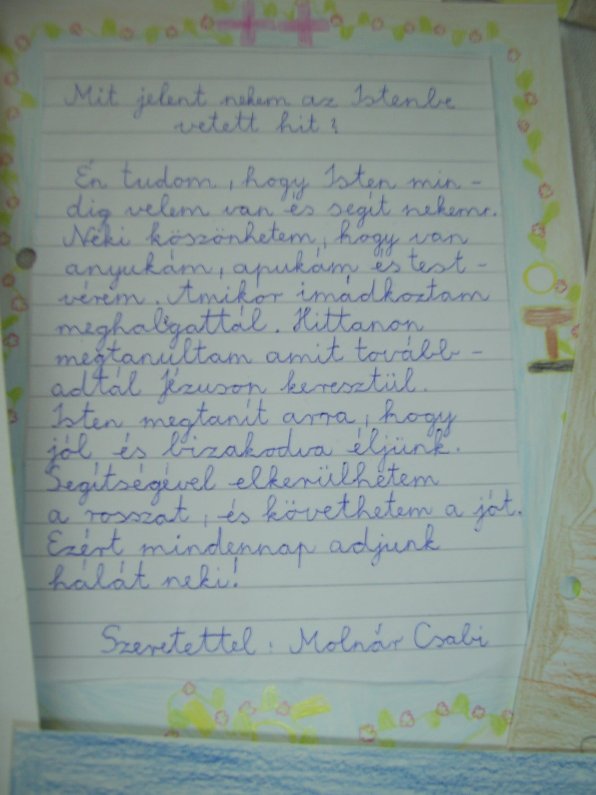 Mit jelent nekem az Istenbe
vetett hit?
Én tudom, hogy Isten min-
dig velem van és segít nekem.
Neki köszönhetem, hogy van
anyukám, apukám és test-
vérem. Amikor imádkoztam
meghallgattál. Hittanon
megtanultam amit tovább-
adtál Jézuson keresztül.
Isten megtanít arra, hogy
jól és bizakodva éljünk.
Segítségével elkerülhetem
a rosszat, és követhetem a jót.
Ezért mindennap adjunk
hálát neki!
Szeretettel: Molnár Csabi